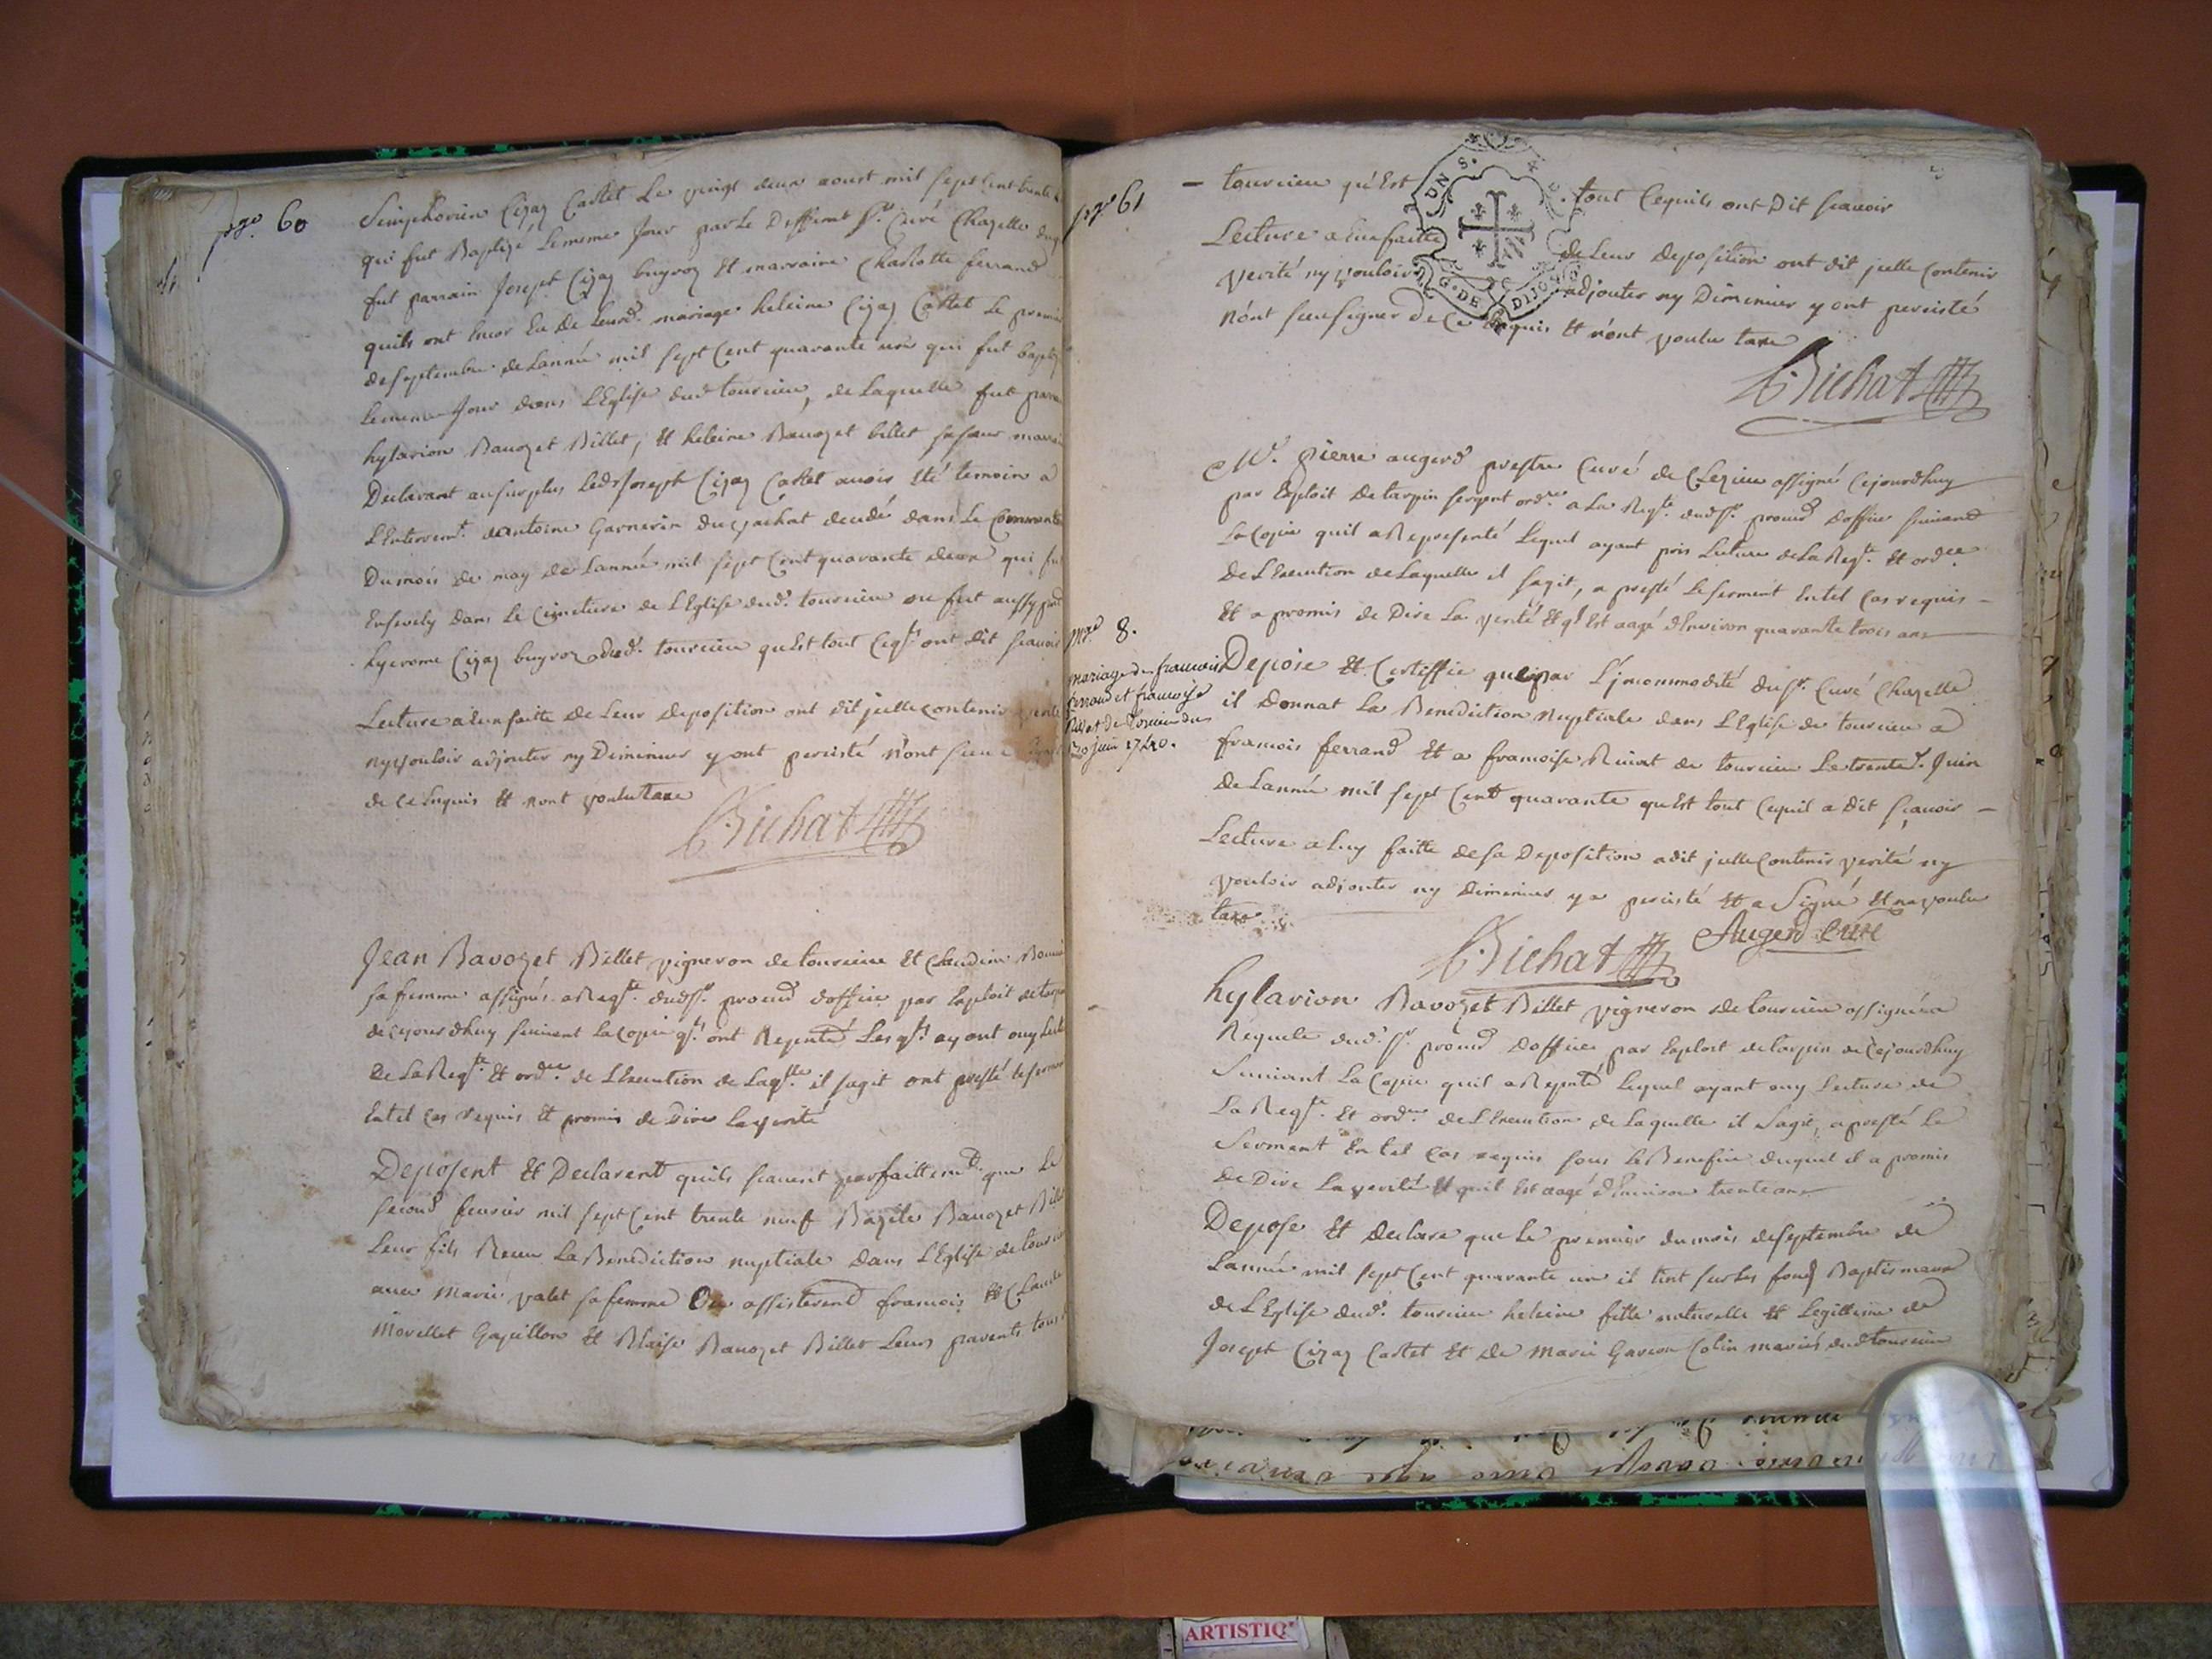 pge. 60
Simphorien Cizay Castet Le vingt deux aoust mil sept Cent trente
qui fut Baptizé Lememe Jour par Le Deffunt Sr. Curé Chazelle
fut parrain Joseph Cizay buyroz Et marraine Charlotte ferrand
quils ont Encor Eu De Leurd. mariage heleine Cizaz Castet Le premie
de septembre de Lannée mil sept Cent quarante un qui fut baptiz
Lememe Jour dans L'Eglise dud tourcieu, de Laquelle fut parra
hylarion Bauozet Billet, Et heleine Bauozet billet sa sœur marra
Declarant ausurplus Led Joseph Cizaz Castet auoir Eté temoin a
L'Enterremt. dantoine Garnerin decedé dans Le Commence
Du mois de may de Lannée mil sept Cent quarante deux qui fut
Ensevely dans Le Cimetiere de L'Eglise dud. tourcieu ou fut aussy
hyerome Cizaz buyroz dud. tourcieu qu Est tout Ceqls ont dit scauoir
Lecture a Eux faitte de Leur Deposition ont dit jcelle contenir verité
ny vouloir adjouter ny Diminuer y ont percisté n'ont sceu
de Ce Enquis Et nont voulu taxe
Bichat
Jean Bavozet Billet vigneron de tourcieu Et Claudine
sa femme assignés a Reqte. dud Sr. procur d'office par Exploit de tarpin
de cejourdhuy suiuant La Copie qls ont Repnté Lesqls ayant ouy Lect
de La Reqte. Et ordce. de L'Execution de Laqlle. il sagit ont presté le serment
En tel Cas requis Et promis de Dire La verité
Deposent Et Declarent quils scauent parfaittemt. que Le
second feurier mil sept Cent trente neuf Bazile Bauozet Bill
Leur fils Receu La Benediction nuptiale dans L'Eglise de tourcie
auec Marie valet sa femme Ou assisterent francois Et Claude
Morellet Gapillon Et Blaise Bauozet Billet Leurs parents tous
pge 61
tourcieu qu'Est tout Cequils ont Dit scauoir
Lecture a Eux faitte de Leur Deposition ont dit jcelle Contenir
verité ny vouloir adjouter ny Diminuer y ont percisté
n'ont sceu signer de Ce Enquis Et n'ont voulu taxe
G. DE DIJON
Bichat
Mr. Pierre augerd prestre Curé de Clezieu assigné Cejourdhuy
par Exploit De tarpin sergent ordre. a La Reqte. dud Sr. procur d'office suiuant
La Copie quil a Representé Lequel ayant pris Lecture de La Reqte. Et ordce.
De L'Execution de Laquelle il sagit, a presté Le serment En tel Cas requis
Et a promis de Dire La verité Et ql Est aagé d'Enuiron quarante trois ans
mge 8.
mariage de francois
ferrand et francoise
Ruiat de Torcieu du
30 juin 1740.
Depose Et Certiffie que par L'jncommodité du Sr. Curé Chazelle
il Donnat La Benediction Nuptiale dans L'Eglise de tourcieu a
francois ferrand Et a francoise Ruiat de tourcieu Le trente. Juin
de Lannée mil sept Cent quarante qu Est tout Cequil a Dit scauoir
Lecture a Luy faitte de sa Deposition a dit jcelle Contenir verité ny
vouloir adjouter ny Diminuer y a percisté Et a Signé Et na voulu
taxe
Augerd curé
Bichat
hylarion Bavozet Billet vigneron de tourcieu assigné a
Requete dud. Sr. procur Doffice par Exploit de tarpin de Cejourdhuy
Suiuant La Copie quil a Repnté Lequel ayant ouy Lecture de
La Reqte. Et ordce. de L'Execution de Laquelle il sagit, a presté Le
Serment En tel Cas requis sous Le Benefice duquel il a promis
de Dire La verité Et quil Est aagé d'Enuiron trente ans
Depose Et declare que Le premier du mois de septembre de
Lannée mil sept Cent quarante un il tint sur Les fonds Baptismaux
de L'Eglise dud. tourcieu heleine fille naturelle Et Legitime de
Joseph Cizaz Castet Et de Marie Garcon Colin mariés dud tourcieu
ARTISTIQ